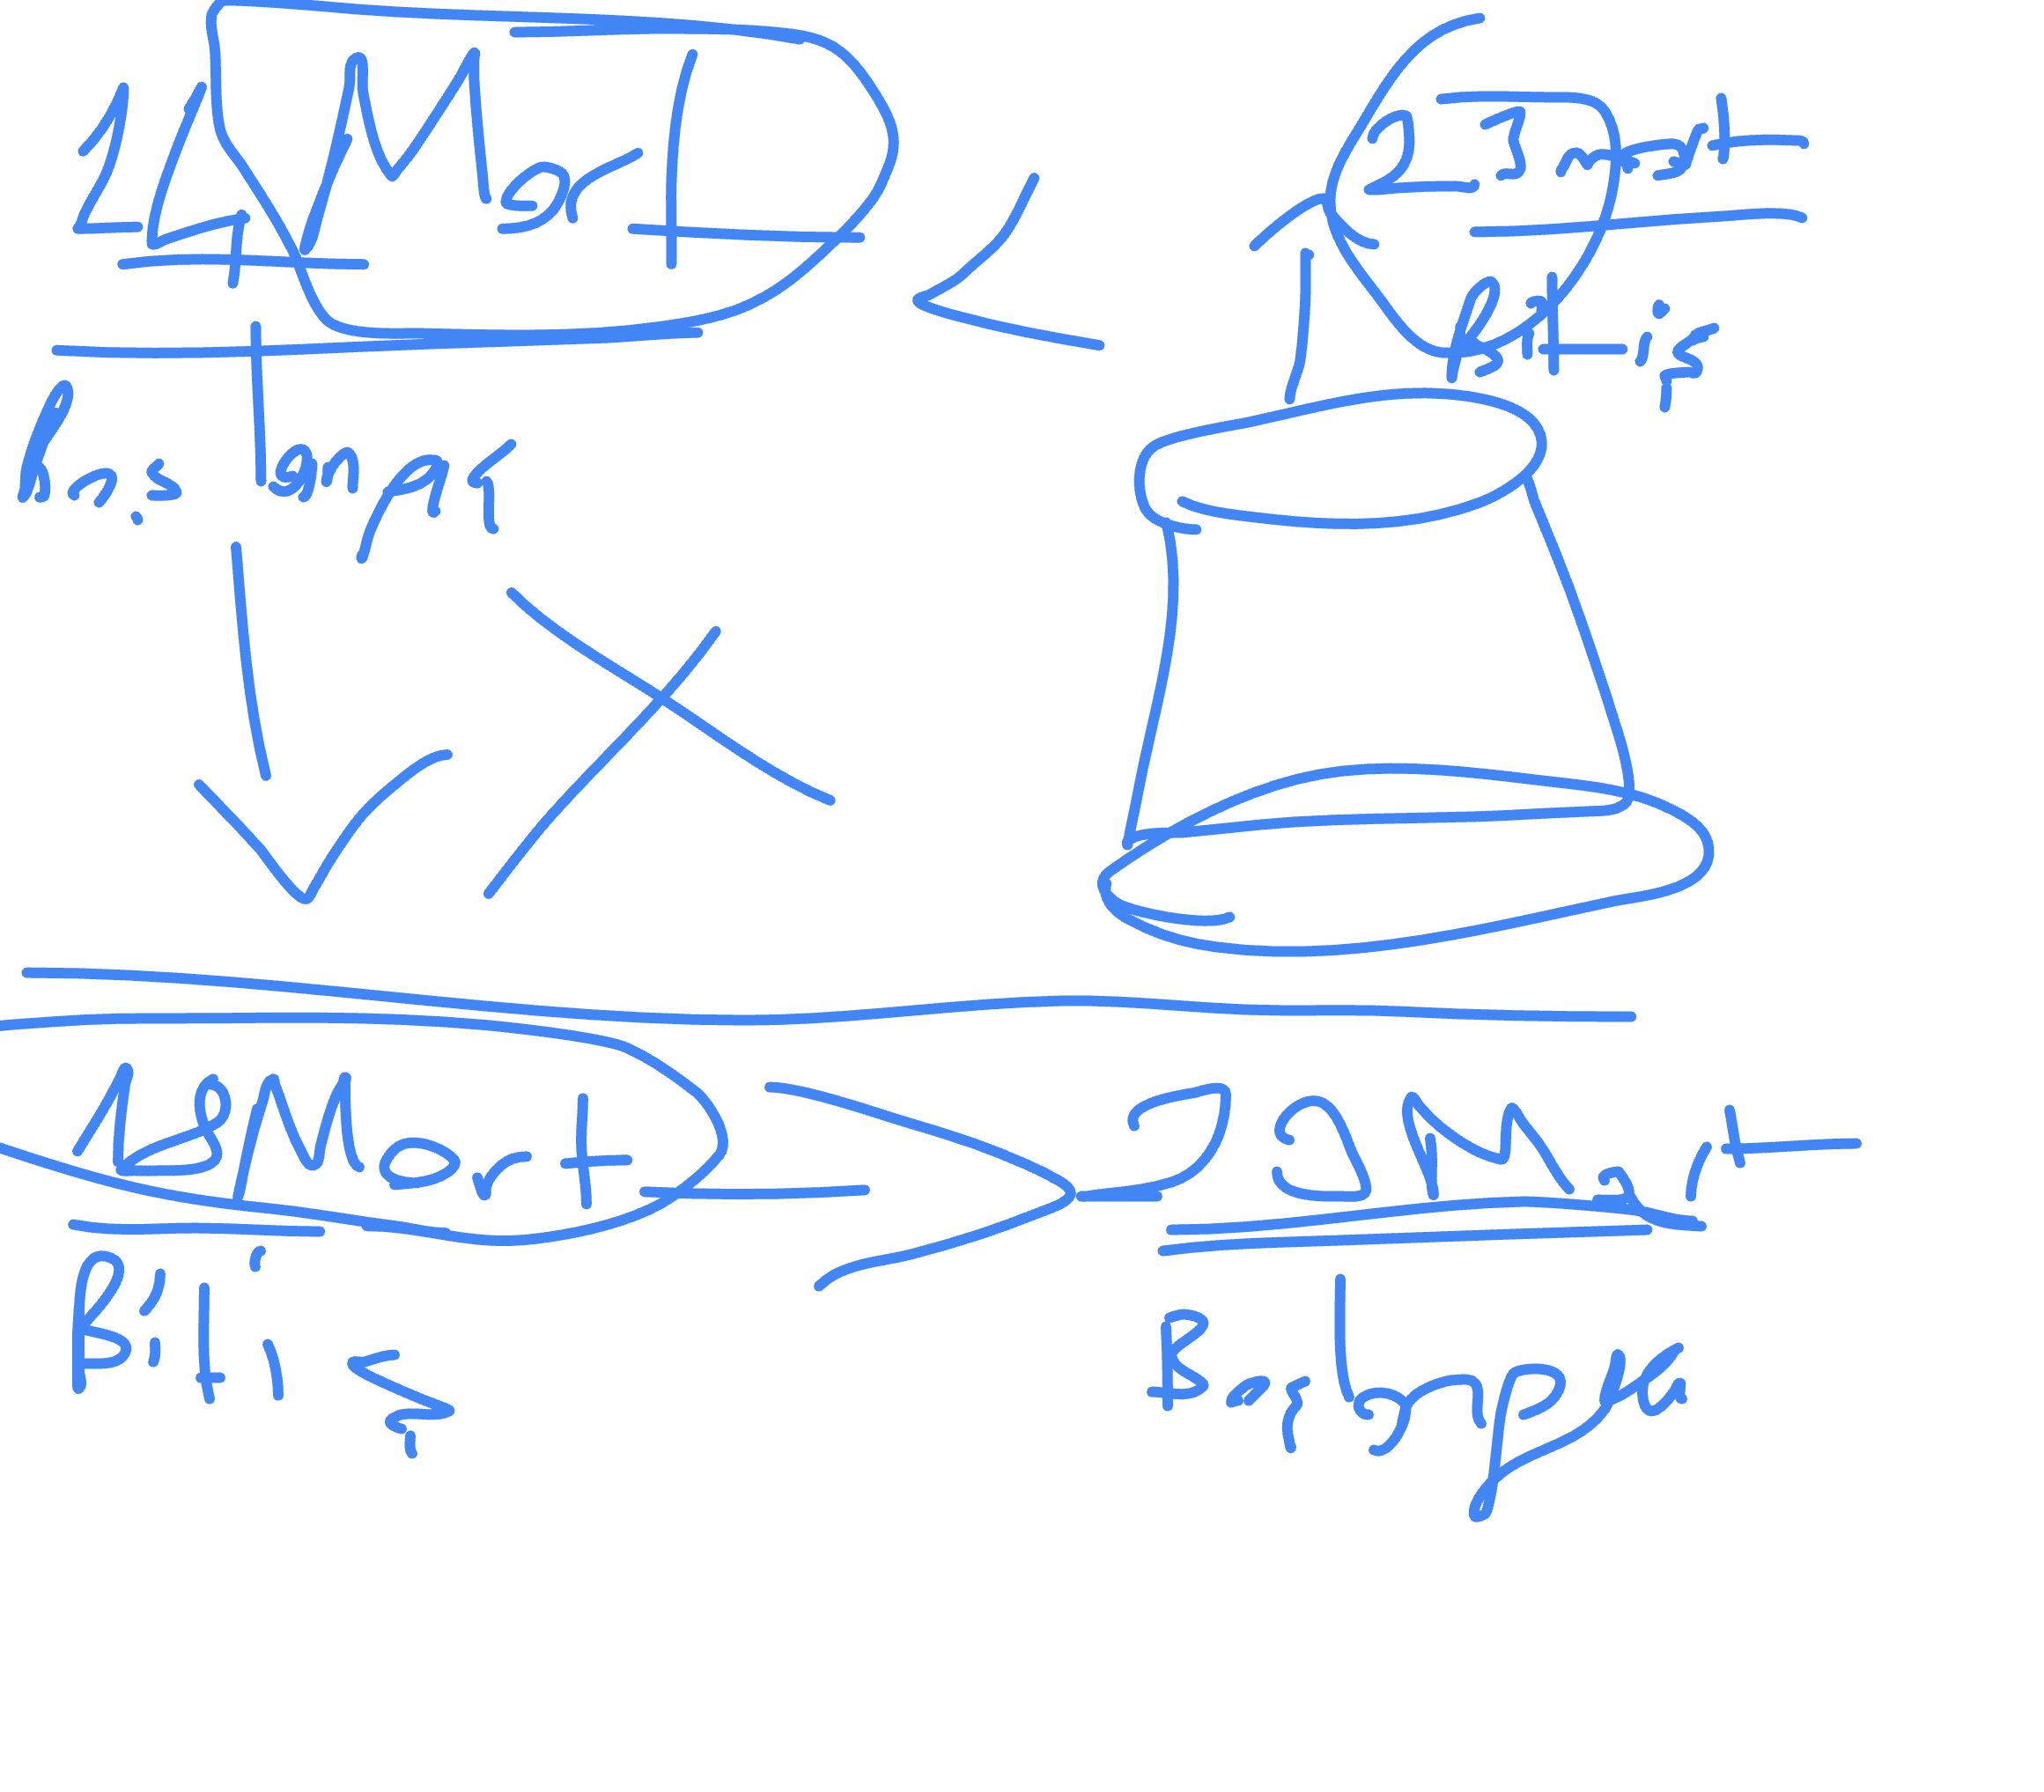 14 Mart
23 mart
Bitiş
Başlangıç
18 Mart
29 Mart
Bitiş
Başlangıç